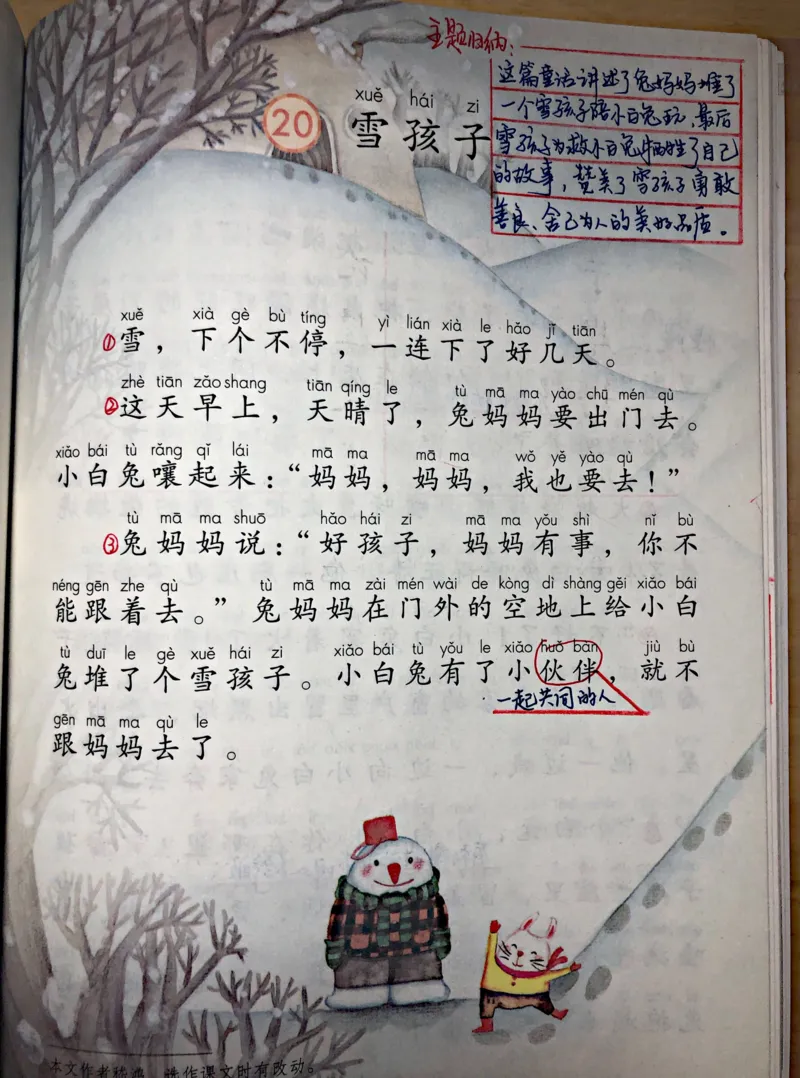 主题归纳：
这篇童话讲述了兔妈妈堆了
一个雪孩子陪小白兔玩，最后
雪孩子为救小白兔牺牲了自己
的故事，赞美了雪孩子勇敢
善良、舍己为人的美好品质。
xuě hái zi
20 雪孩子
xuě xià gè bù tíng yì lián xià le hǎo jǐ tiān
①雪，下个不停，一连下了好几天。
zhè tiān zǎo shang tiān qíng le tù mā ma yào chū mén qù
②这天早上，天晴了，兔妈妈要出门去。
xiǎo bái tù rǎng qǐ lái mā ma mā ma wǒ yě yào qù
小白兔嚷起来：“妈妈，妈妈，我也要去！”
tù mā ma shuō hǎo hái zi mā ma yǒu shì nǐ bù
③兔妈妈说：“好孩子，妈妈有事，你不
néng gēn zhe qù tù mā ma zài mén wài de kòng dì shàng gěi xiǎo bái
能跟着去。”兔妈妈在门外的空地上给小白
tù duī le gè xuě hái zi xiǎo bái tù yǒu le xiǎo huǒ bàn jiù bù
兔堆了个雪孩子。小白兔有了小伙伴，就不
一起共同的人
gēn mā ma qù le
跟妈妈去了。
本文作者嵇鸿，选作课文时有改动。